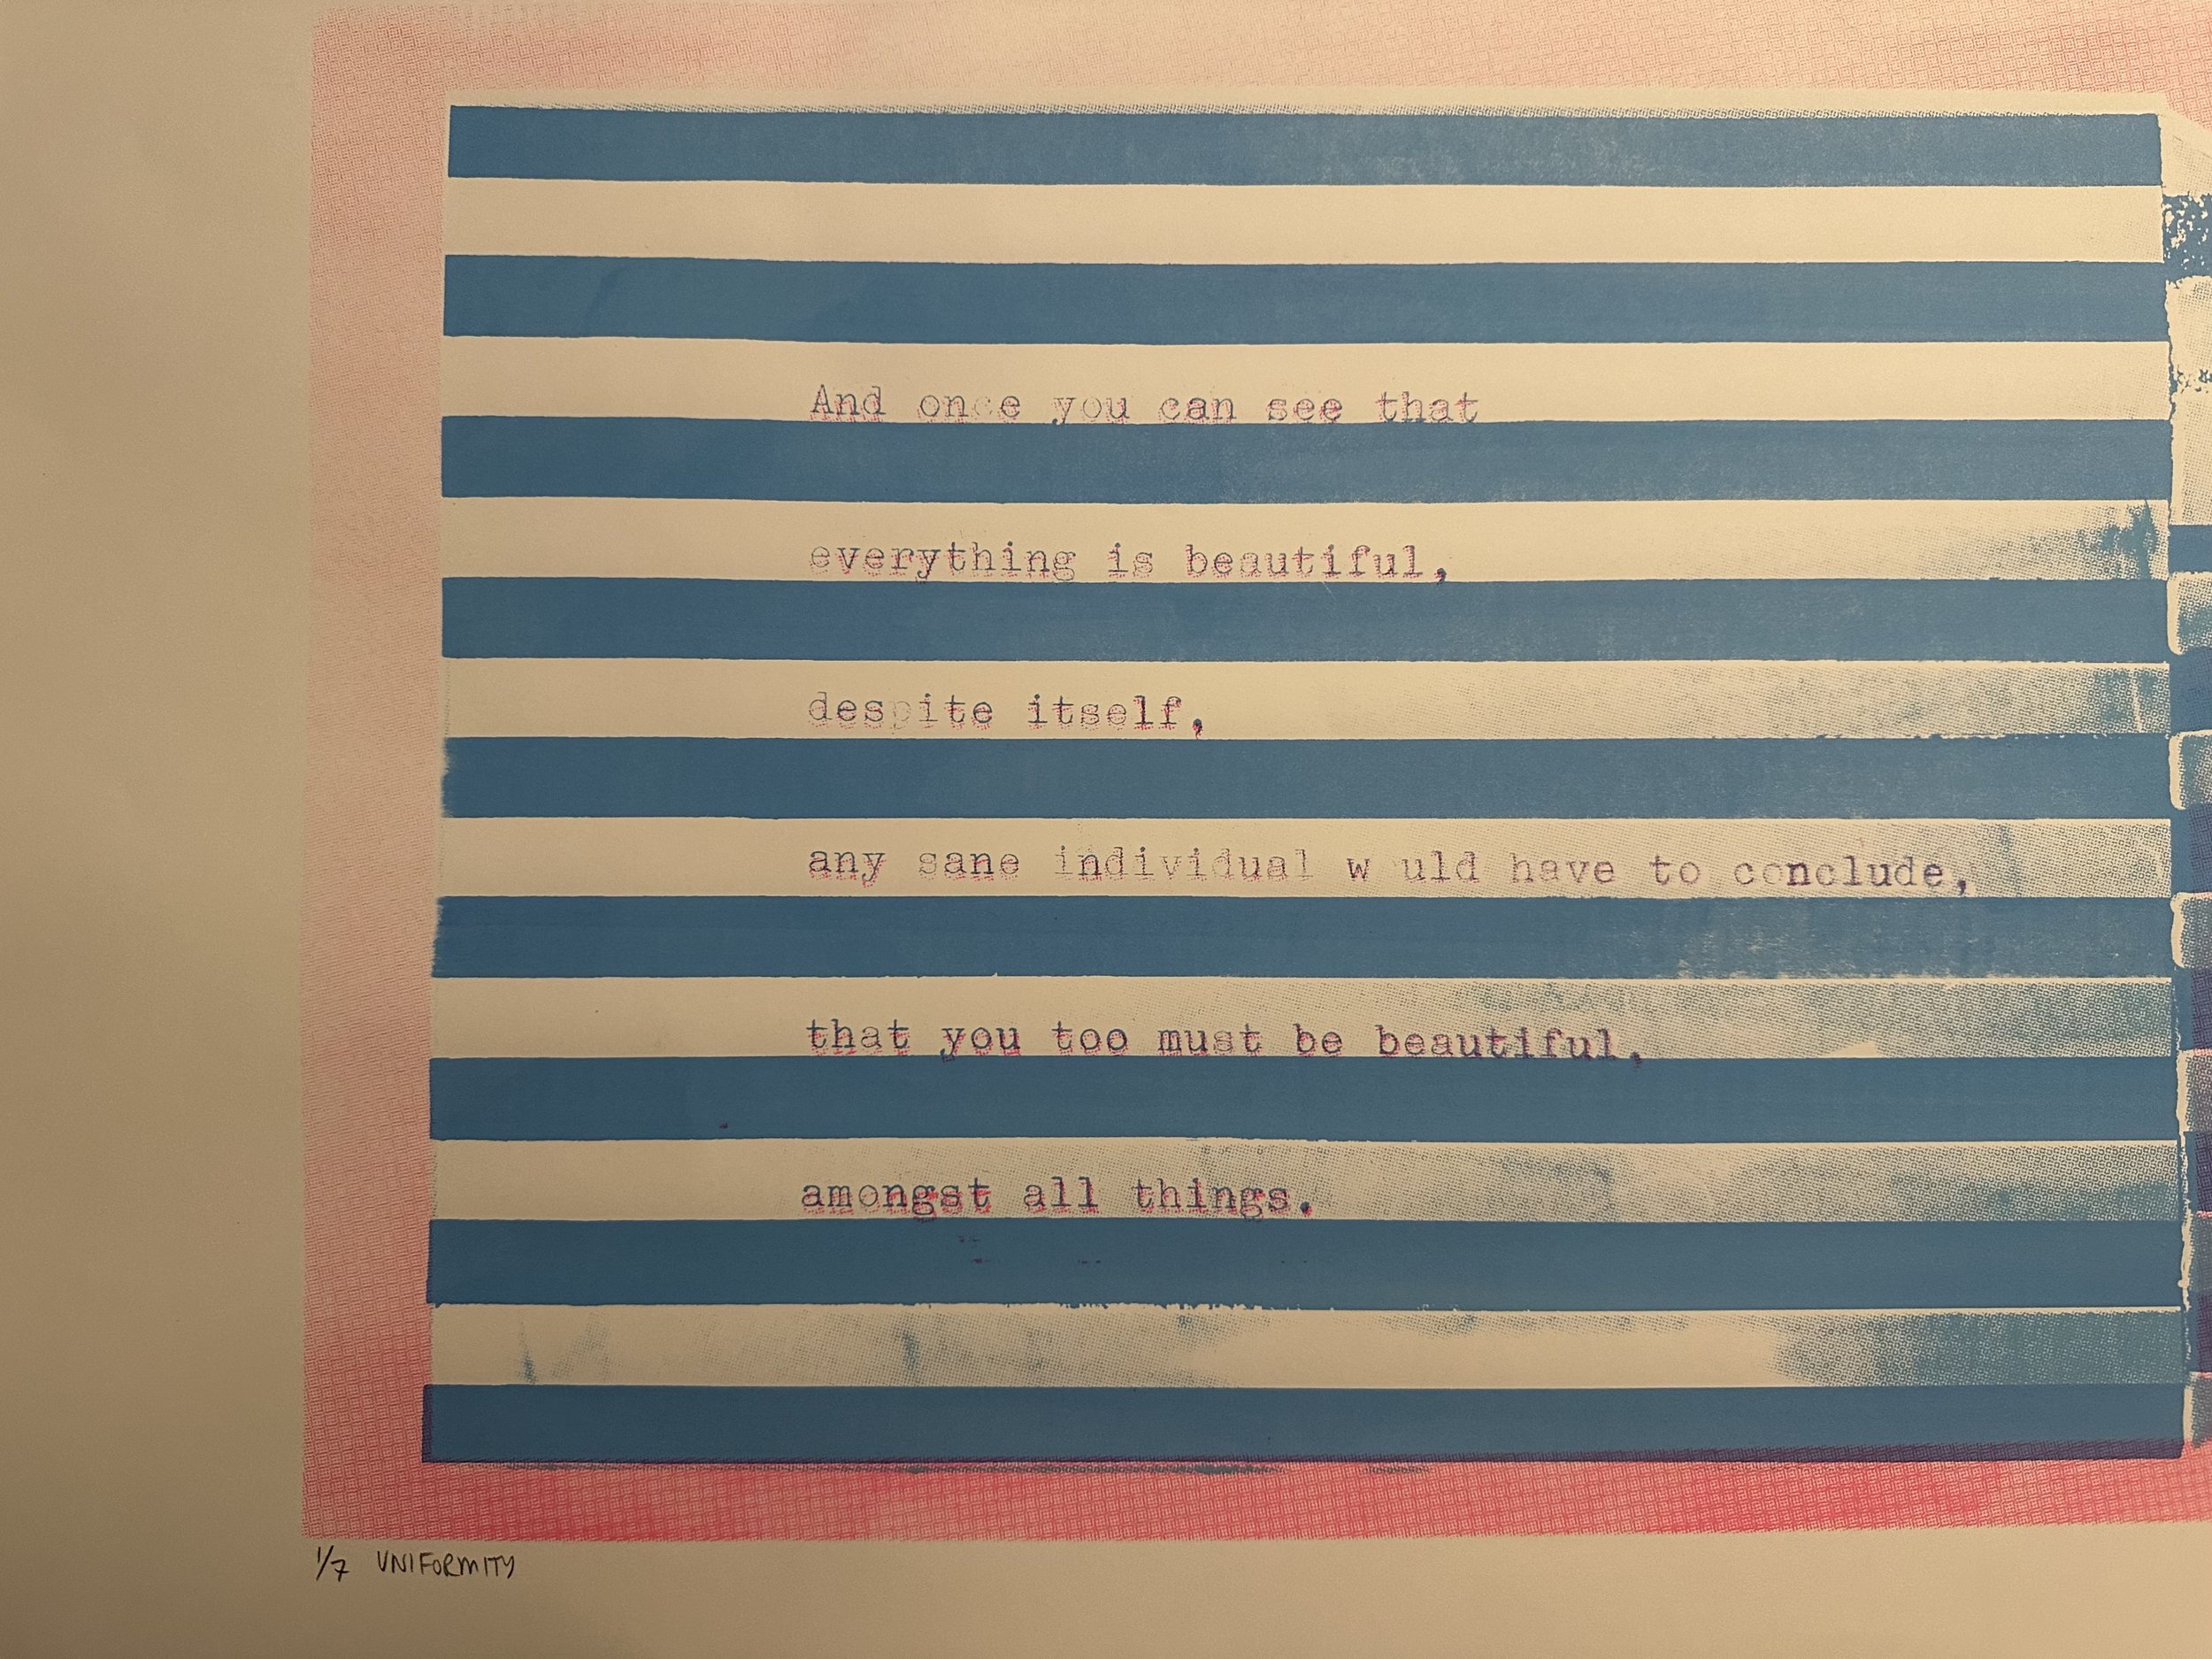 And once you can see that
everything is beautiful,
despite itself,
any sane individual w uld have to conclude,
that you too must be beautiful,
amongst all things.
1/7 UNIFORMITY